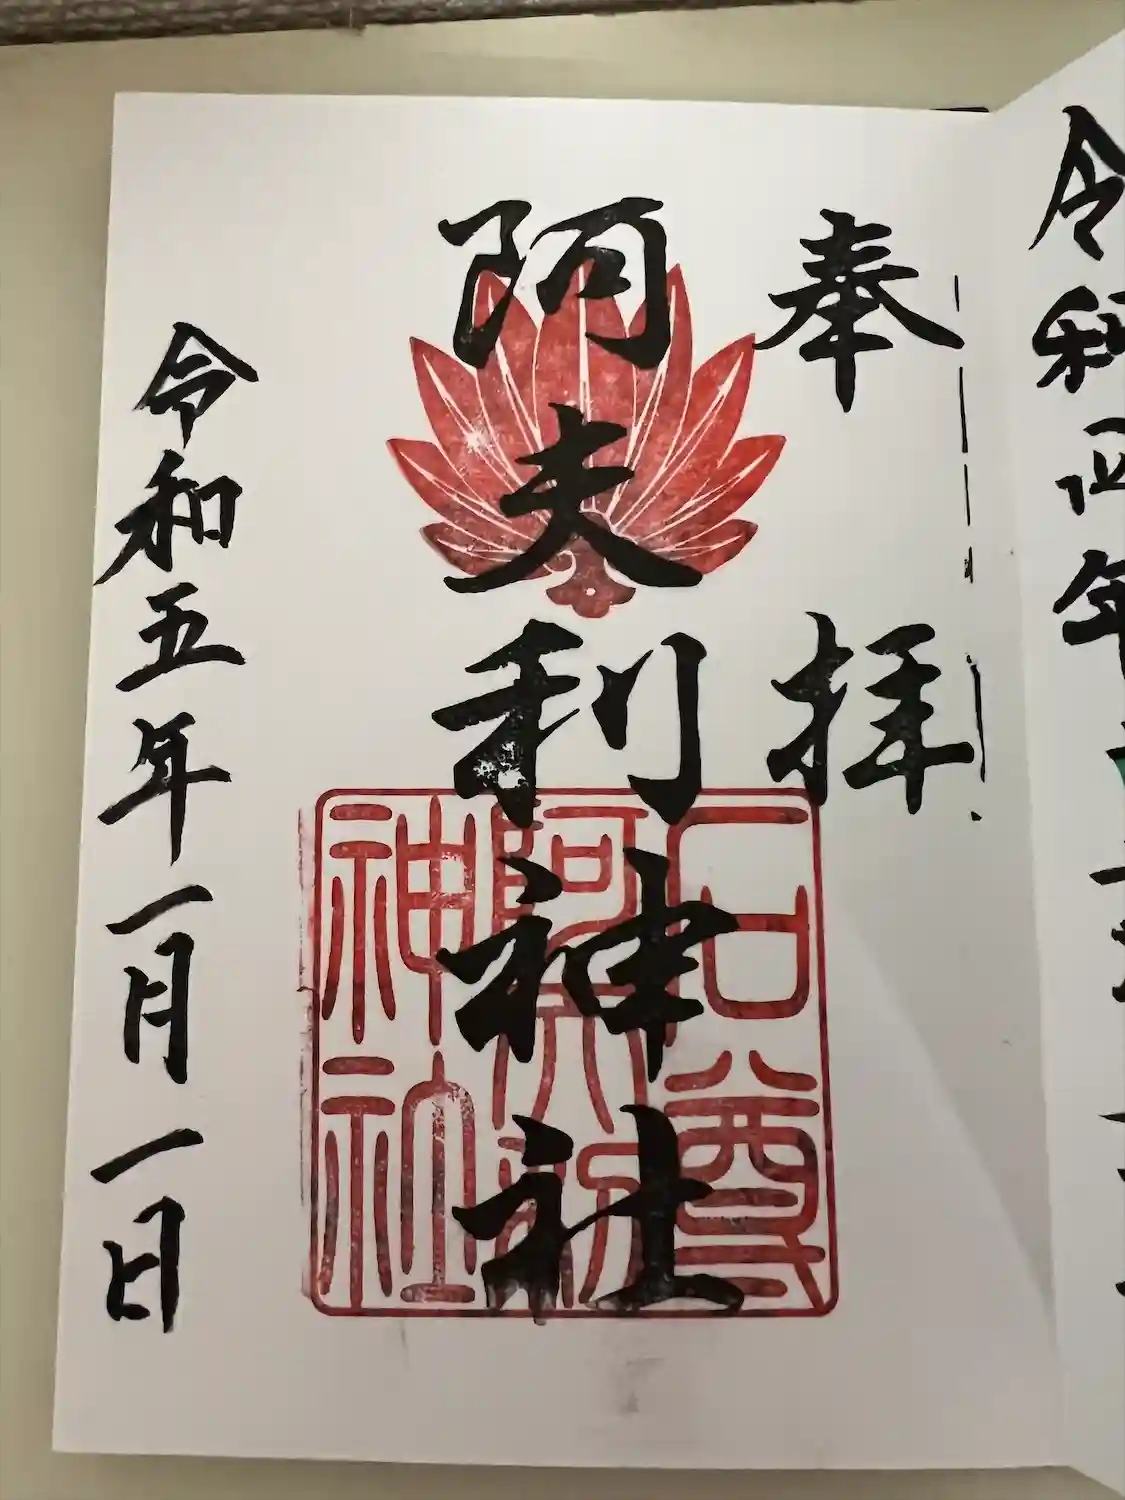 令和四年
奉拝
阿夫利神社
石尊
阿夫利
神社
令和五年一月一日